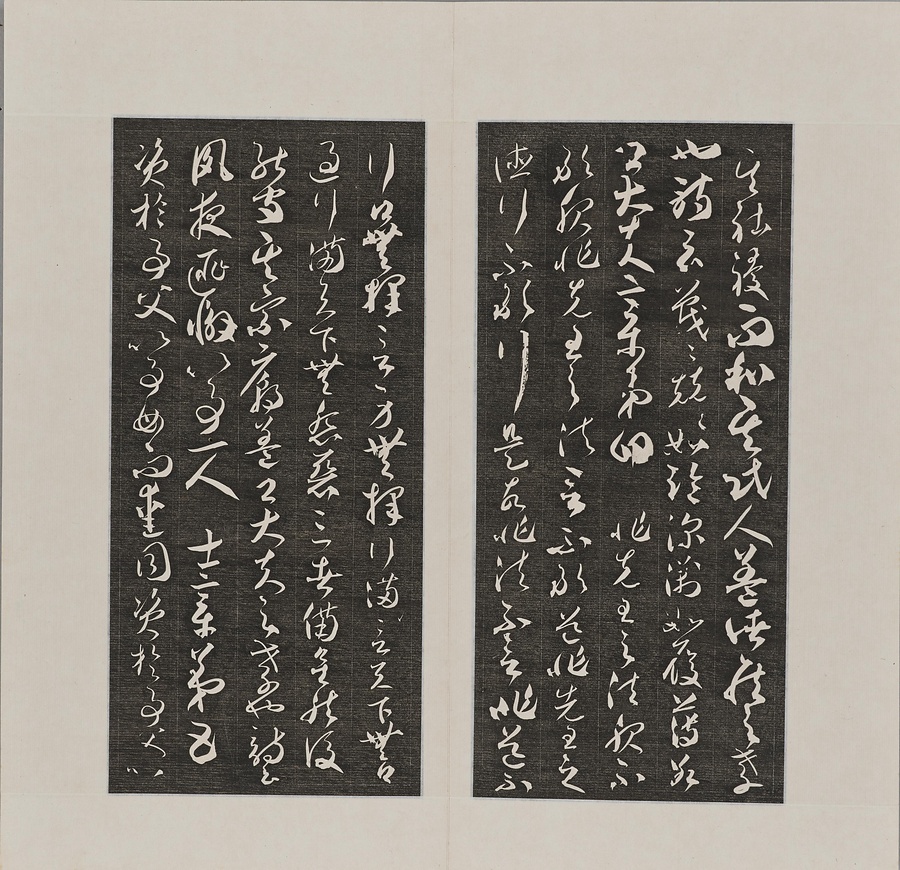 其社稷而和其民人蓋諸侯之孝
也詩云戰〻兢〻如臨深淵如履薄冰
卿大夫章第四 非先王之法服不
敢服非先王之法言不敢道非先王之
德行不敢行是故非法不言非道不
行口無擇言身無擇行滿言天下無口
過行滿天下無怨惡三者備矣然後
能守其宗廟蓋卿大夫之孝也詩云
夙夜匪懈以事一人 士章第五
資於事父以事母而愛同資於事父以